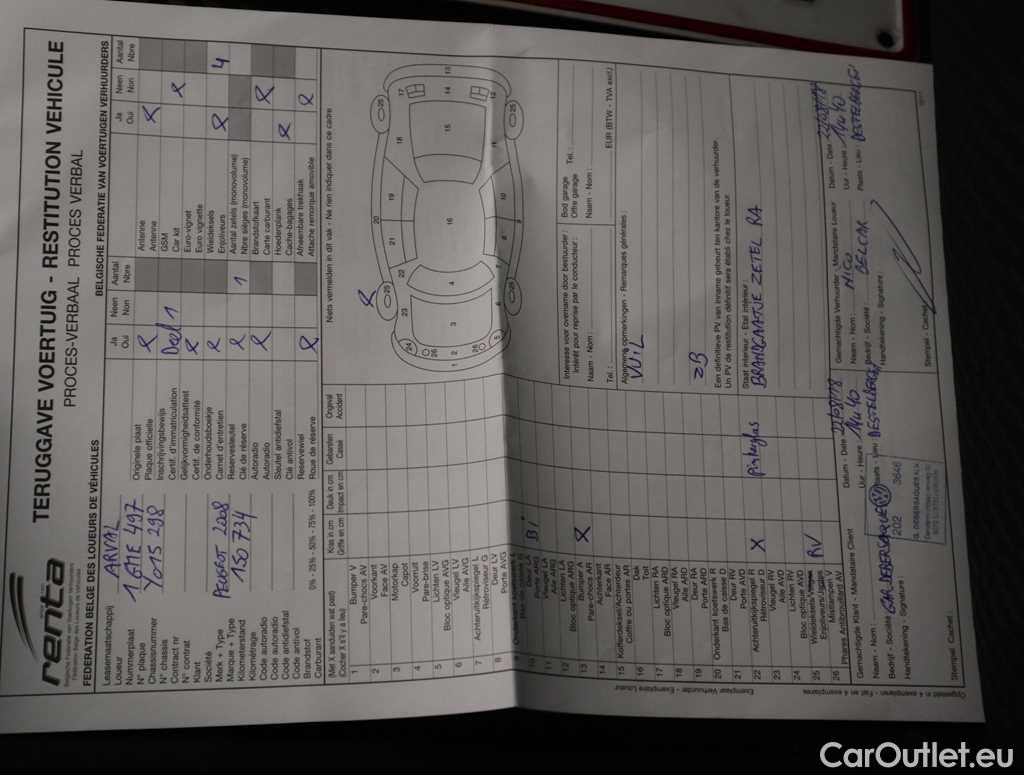 renta
Belgische Federatie van Voertuigen Verhuurders
Fédération Belge des Loueurs de Véhicules
TERUGGAVE VOERTUIG - RESTITUTION VEHICULE
PROCES-VERBAAL PROCES VERBAL
FEDERATION BELGE DES LOUEURS DE VÉHICULES
BELGISCHE FEDERATIE VAN VOERTUIGEN VERHUURDERS
Leasemaatschappij
Loueur
ARVAL
Nummerplaat
N° plaque
Chassisnummer
N° chassis
Y015298
Contract nr
N° contrat
Klant
Société
Merk + Type
Marque + Type
PEUGEOT 2008
Kilometerstand
Kilométrage
150 734
Code autoradio
Code autoradio
Code antidiefstal
Code antivol
Brandstof
Carburant
0% - 25% - 50% - 75% - 100%
Ja Neen Aantal
Oui Non Nbre
Originele plaat
Plaque officielle
Inschrijvingsbewijs
Certif. d'immatriculation
Deel 1
Gelijkvormigheidsattest
Certif. de conformité
Onderhoudsboekje
Carnet d'entretien
Reservesleutel
Clé de réserve
1
Autoradio
Autoradio
Sleutel antidiefstal
Clé antivol
Reservewiel
Roue de réserve
Ja Neen Aantal
Oui Non Nbre
Antenne
Antenne
GSM
Car kit
Euro vignet
Euro vignette
Wieldeksels
Enjoliveurs
4
Aantal zetels (monovolume)
Nbre sièges (monovolume)
Brandstofkaart
Carte carburant
Hoedenplank
Cache-bagages
Afneembare trekhaak
Attache remorque amovible
(Met X aanduiden wat past)
(Cocher X s'il y a lieu)
Kras in cm
Griffe en cm
Deuk in cm
Impact en cm
Gebarsten
Cassé
Ongeval
Accident
1 Bumper V
Pare-chocs AV
2 Voorkant
Face AV
3 Motorkap
Capot
4 Voorruit
Pare-brise
5 Lichten LV
Bloc optique AVG
6 Vleugel LV
Aile AVG
7 Achteruitkijkspiegel L
Rétroviseur G
8 Deur LV
Porte AVG
9
10 Deur LA
Porte ARG
11
Aile ARG
12 Lichten LA
Bloc optique ARG
13 Bumper A
Pare-chocs AR
X
14 Achterkant
Face AR
15 Kofferdeksel/Achterdeur
Coffre ou portes AR
16 Dak
Toit
17 Lichten RA
Bloc optique ARD
18 Vleugel RA
Aile ARD
19 Deur RA
Porte ARD
20 Onderkant koetswerk R
Bas de caisse D
21 Deur RV
Porte AVD
22 Achteruitkijkspiegel R
Rétroviseur D
X
23 Vleugel RV
Aile AVD
24 Lichten RV
Bloc optique AVD
25
RV
26 Mistlampen V
Phares Antibrouillard AV
Niets vermelden in dit vak - Ne rien indiquer dans ce cadre
Interesse voor overname door bestuurder :
Intérêt pour reprise par le conducteur :
Naam - Nom :
Tel. :
Bod garage
Offre garage
Tel. :
Naam - Nom :
EUR (BTW - TVA excl.)
Algemene opmerkingen - Remarques générales :
VUIL
Een definitieve PV van inname gebeurt ten kantore van de verhuurder.
Un PV de restitution définitif sera établi chez le loueur.
Staat interieur : Etat intérieur :
BRANDGAATJE ZETEL RA
Gemachtigde Klant - Mandataire Client
Naam - Nom :
Bedrijf - Société :
Handtekening - Signature :
Stempel : Cachet :
Datum - Date 22/08/18
Uur - Heure : 14u40
DESTELBERGEN
202 3646
Gemachtigde Verhuurder - Mandataire Loueur
Naam - Nom : NICO
Bedrijf - Société : BELCAR
Handtekening - Signature :
Stempel : Cachet :
Datum - Date 22/08/18
Uur - Heure : 14u40
Plaats - Lieu : DESTELBERGEN
Exemplaar Verhuurder - Exemplaire Loueur
Opgesteld in 4 exemplaren - Fait en 4 exemplaires
CarOutlet.eu